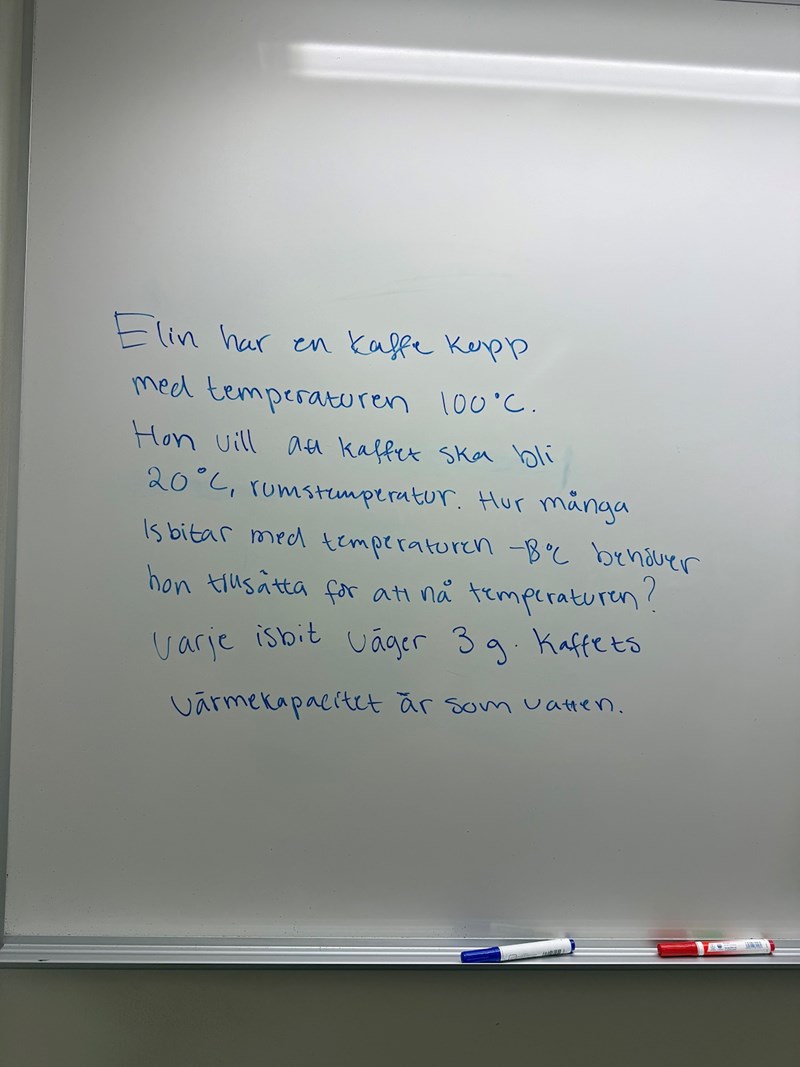 Elin har en kaffe kopp
med temperaturen 100°C.
Hon vill att kaffet ska bli
20°C, rumstemperatur. Hur många
Isbitar med temperaturen -8°C behöver
hon tillsätta för att nå temperaturen?
Varje isbit väger 3 g. Kaffets
värmekapacitet är som vatten.